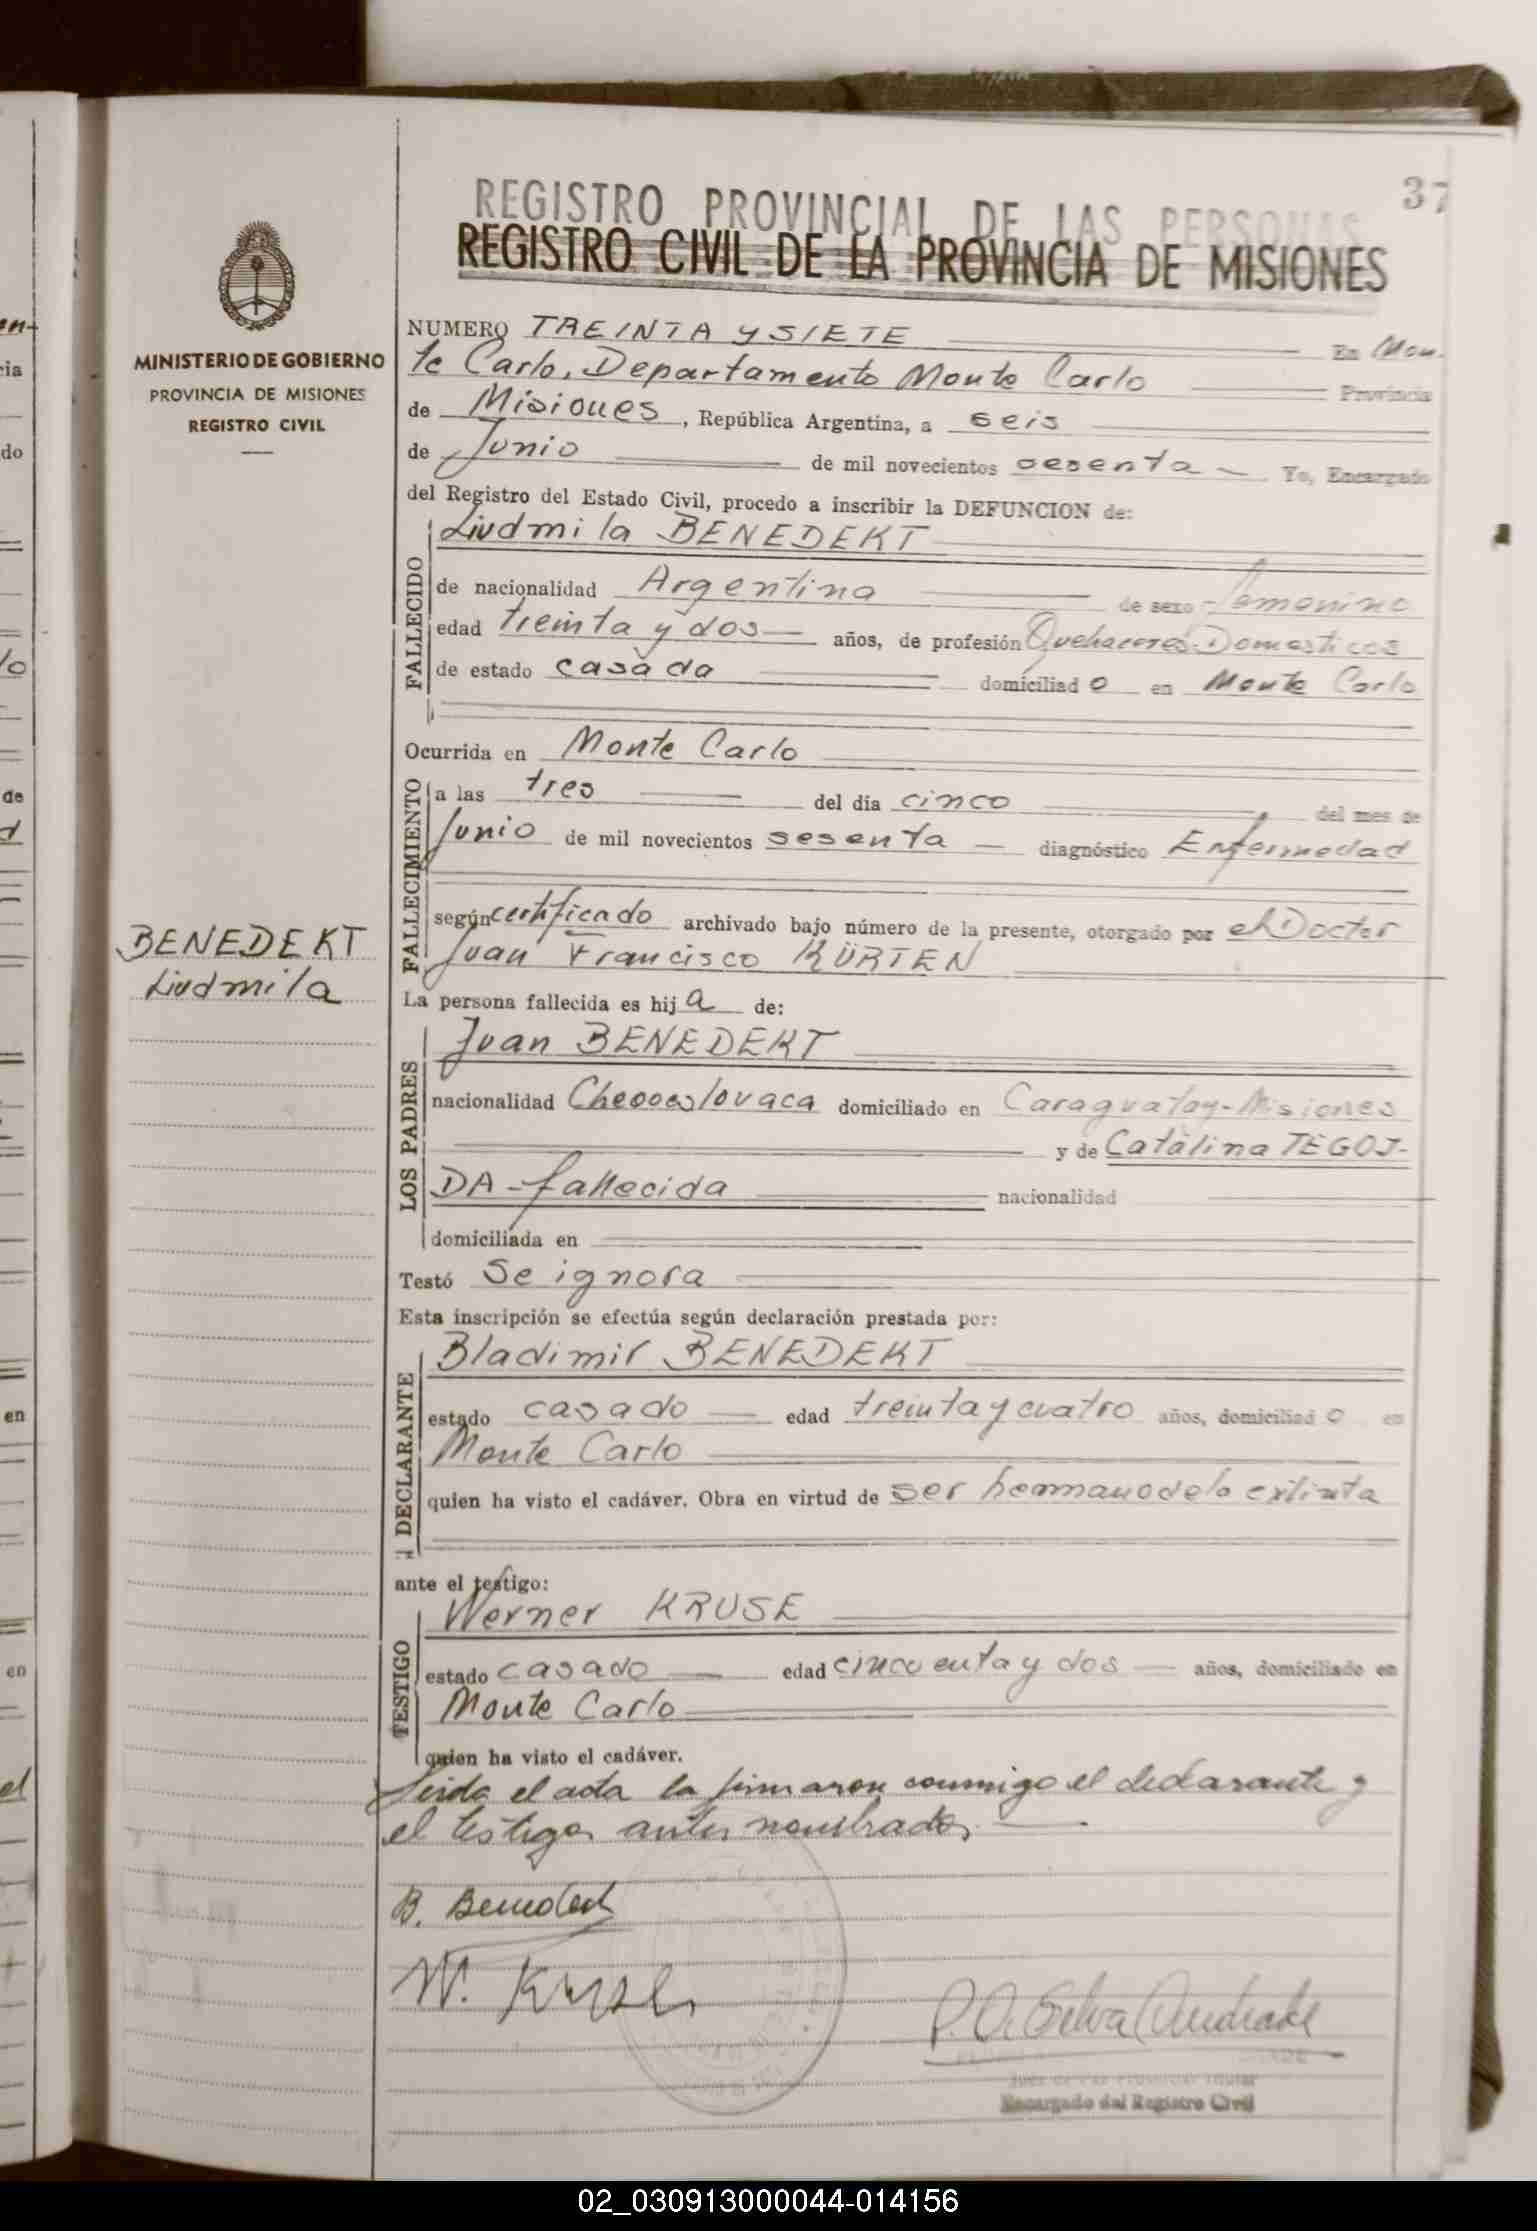 37
REGISTRO PROVINCIAL DE LAS PERSONAS
REGISTRO CIVIL DE LA PROVINCIA DE MISIONES
MINISTERIO DE GOBIERNO
PROVINCIA DE MISIONES
REGISTRO CIVIL
BENEDEKT
Liudmila
NUMERO TREINTA Y SIETE En Mon-
te Carlo, Departamento Monte Carlo Provincia
de Misiones, República Argentina, a seis
de Junio de mil novecientos sesenta Yo, Encargado
del Registro del Estado Civil, procedo a inscribir la DEFUNCION de:
FALLECIDO
Liudmila BENEDEKT
de nacionalidad Argentina de sexo Femenino
edad treinta y dos años, de profesión Quehaceres Domesticos
de estado casada domiciliado en Monte Carlo
Ocurrida en Monte Carlo
FALLECIMIENTO
a las tres del día cinco del mes de
Junio de mil novecientos sesenta diagnóstico Enfermedad
según certificado archivado bajo número de la presente, otorgado por el Doctor
Juan Francisco KÜRTEN
La persona fallecida es hija de:
LOS PADRES
Juan BENEDEKT
nacionalidad domiciliado en Caraguatay-Misiones
y de Catalina TEGOJ-
DA - fallecida nacionalidad
domiciliada en
Testó Se ignora
Esta inscripción se efectúa según declaración prestada por:
DECLARANTE
Bladimir BENEDEKT
estado casado edad treinta y cuatro años, domiciliado en
Monte Carlo
quien ha visto el cadáver. Obra en virtud de ser hermano de la extinta
ante el testigo:
TESTIGO
Werner KRUSE
estado casado edad cincuenta y dos años, domiciliado en
Monte Carlo
quien ha visto el cadáver.
Leida el acta la firmaron conmigo el declarante y
el testigo antes nombrados
B. Benedect
W. Kruse
P.O. Silva Andrade
Encargado del Registro Civil
02_030913000044-014156